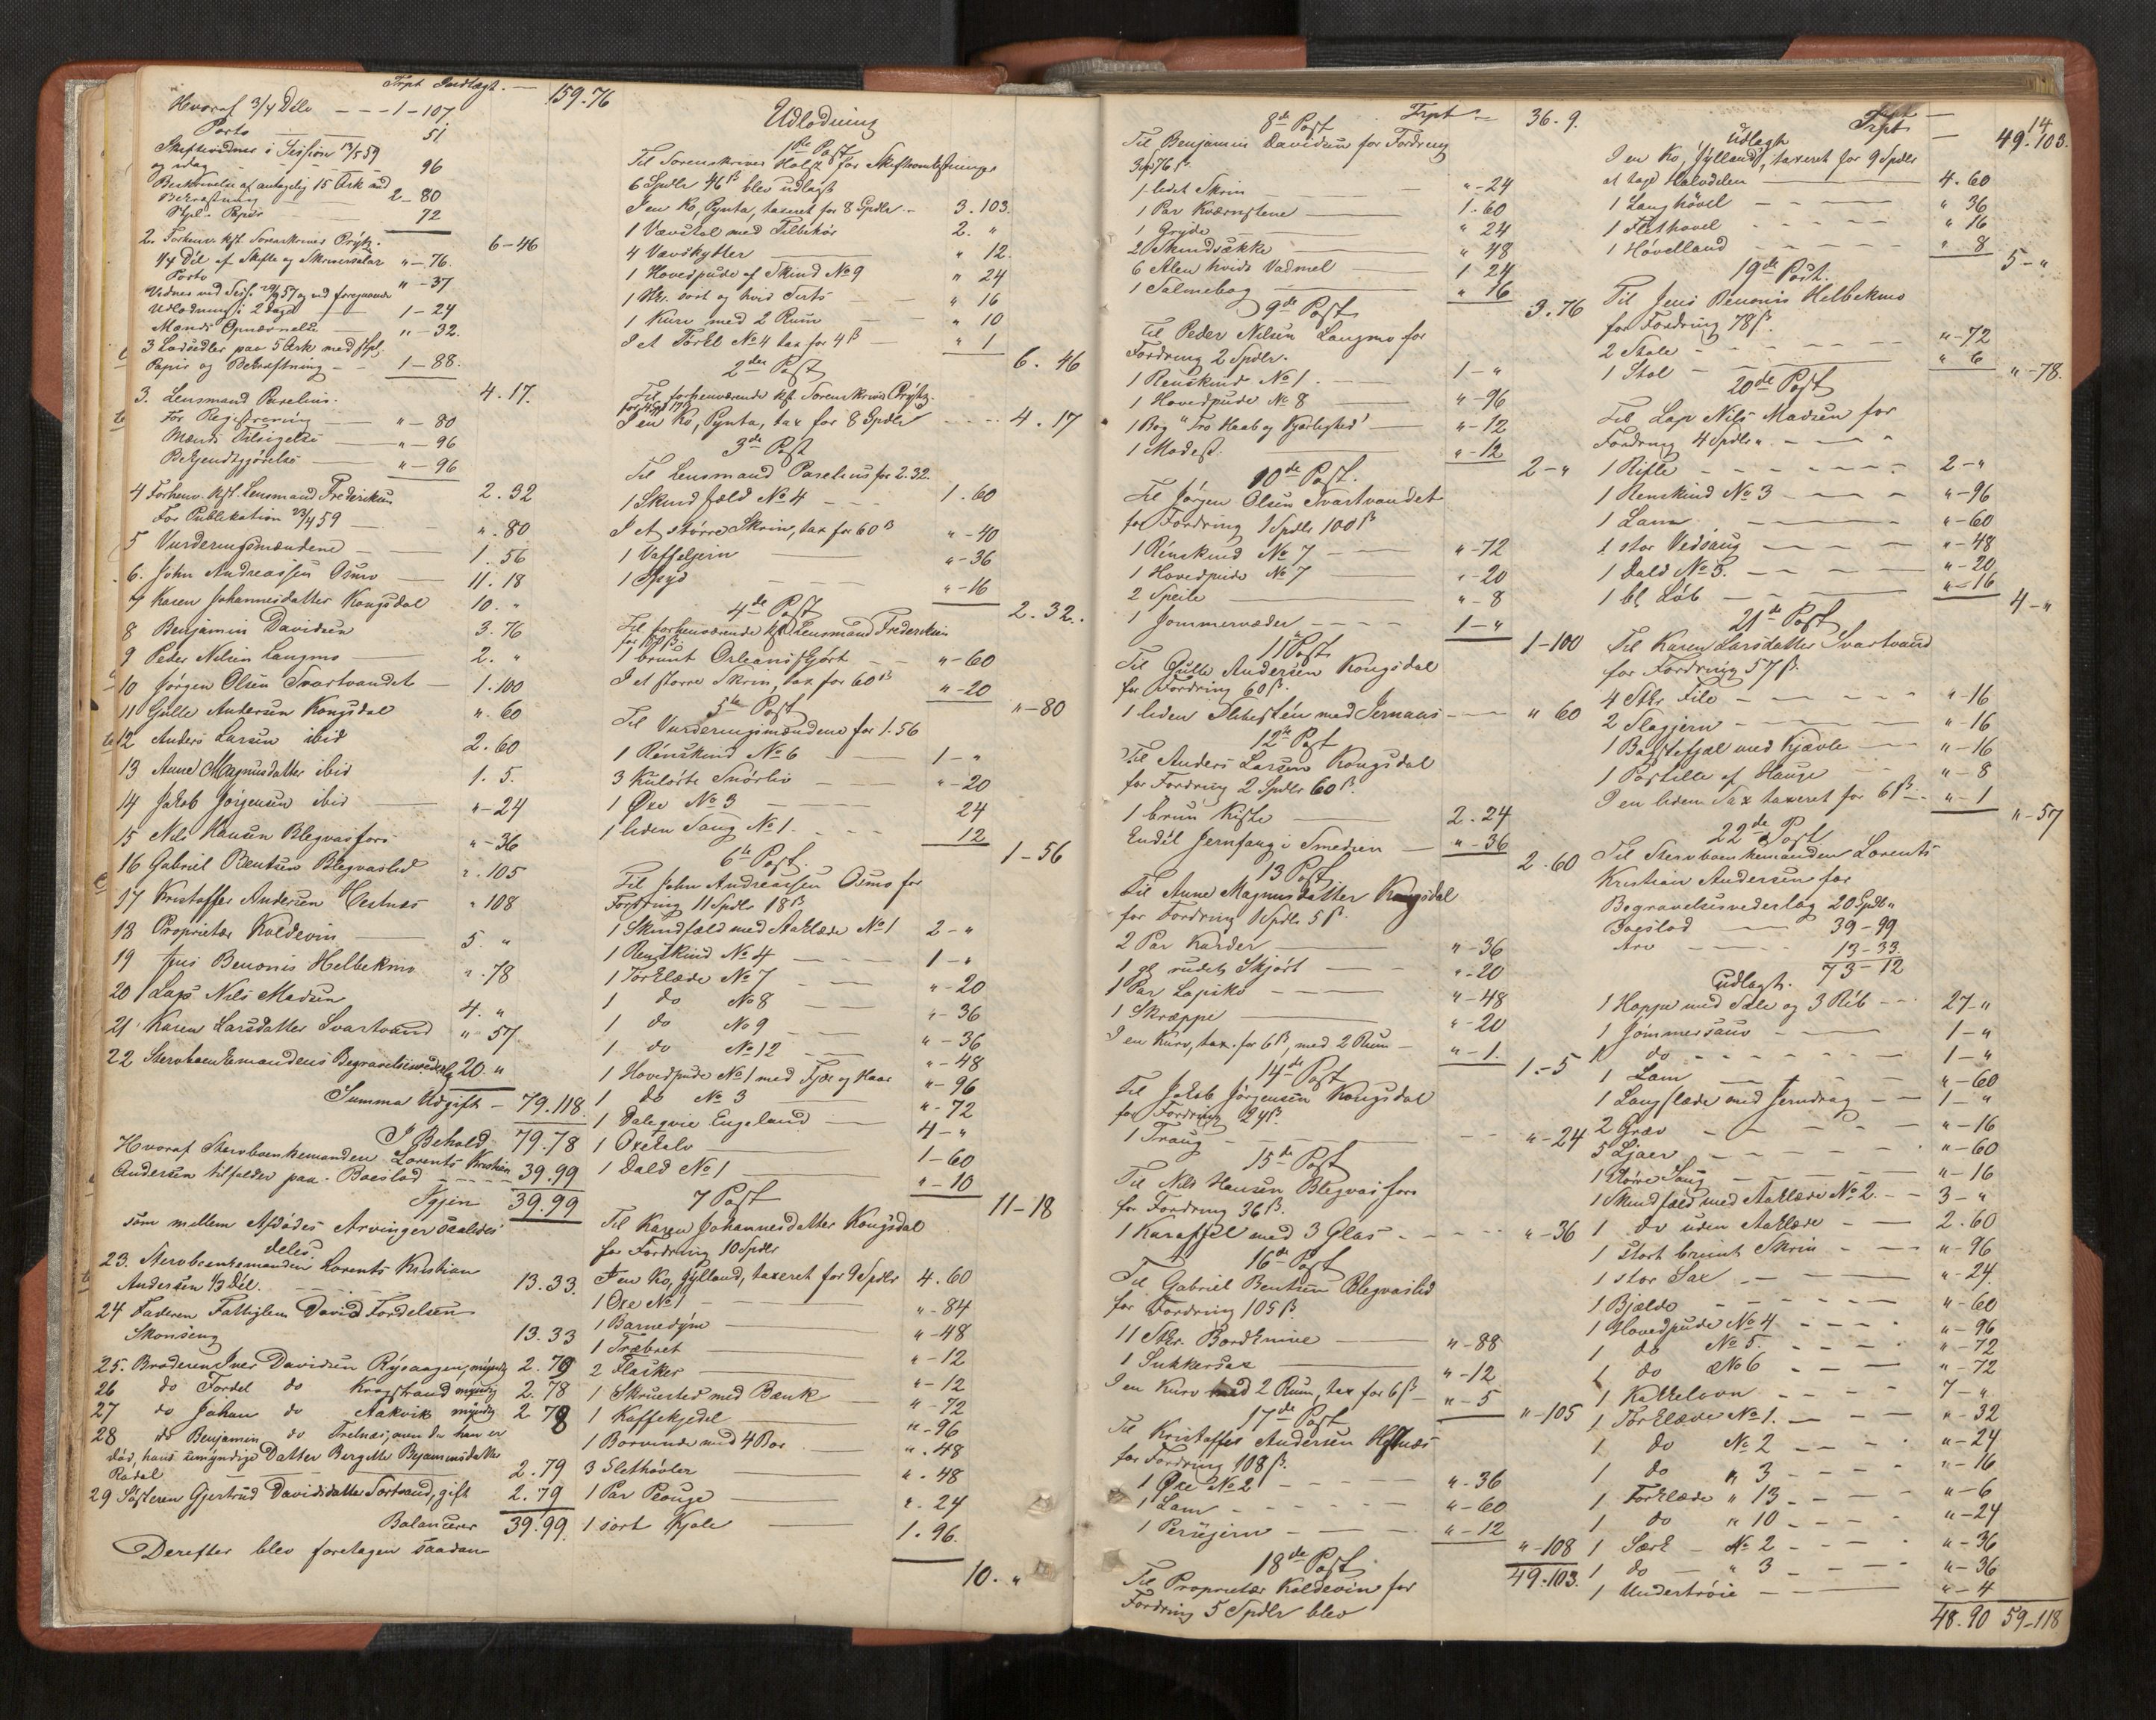 Trpt Indtægt. — 159.76
Hvoraf 3/4 Dele — — — 1-107
Porto 51
Skiftevidner i Session 13/5 59
og idag — — 96
Beskrivelse af antagelig 15 Ark med
Bekræftning 2-80
Stpl. Papir 72
6-46
2. Forhenv. kst. Sorenskriver Prytz.
1/4 Del af Skifte og Skriversalær " - 76.
Porto " - 37
Vidner ved Sess. 29/9 57 og ved foregaaende
Udlodning i 2 Dage 1-24
Mænds Opnævnelse " - 32.
3 Lodsedler paa 5 Ark med stpl.
Papir og Bekræftning — 1-88.
4.17.
3. Lensmand Parelius.
For Registrering " - 80
Mænds Tilsigelse " - 96
Bekjendtgjørelse " - 96
2.32
4 Forhenv. kst. Lensmand Frederiksen
For Publikation 23/4 59 — ". 80
5 Vurderingsmændene — 1.56
6. John Andreassen Osmo — 11.18
7 Karen Johannesdatter Kongsdal 10. "
8 Benjamin Davidsen 3.76
9 Peder Nilsen Langmo — 2. "
10 Jørgen Olsen Svartvandet — 1.100
11 Gulle Andersen Kongsdal ". 60
12 Anders Larsen ibid 2.60
13 Anne Magnusdatter ibid 1. 5.
14 Jakob Jørgensen ibid — " - 24
15 Nils Hansen Blegvasfors " - 36
16 Gabriel Bentsen Blegvaslid ". 105
17 Kristoffer Andersen Hestnæs " 108
18 Proprietær Koldevin — 5. "
19 Jens Benonis Helbekmo ". 78
20 Lap Nils Madsen 4. "
21 Karen Larsdatter Svartvand " 57
22 Stervboenkemandens Begravelsesvederlag 20. "
Summa Udgift — 79.118.
I Behold 79.78
Hvoraf Stervboenkemanden Lorents Kristian
Andersen tilfalder paa Boeslod — — 39.99
Igjen 39.99
som mellem Afdødes Arvinger saaledes
deles.
23. Stervboenkemanden Lorents Kristian
Andersen 1/3 Del. 13.33.
24 Faderen Fattiglem David Fordelsen
Skonseng 13.33
25. Broderen Iver Davidsen Rysaagen, myndig 2.79
26 do Fordel do Kragstrand myndig 2.78
27 do Johan do Aakvik myndig 2 78
28 do Benjamin do Trelnæs, men da han er
død, hans umyndige Datter Bergitte Benjaminsdatter
Rødal 2.79
29 Søsteren Gjertrud Davidsdatter Sortvand, gift 2.79
Balancerer 39.99.
Derefter blev foretagen saadan
Udlodning
1ste Post
Til Sorenskriver Holst for Skifteomkostninger
6 Spdlr 46 ß blev udlagt
I en Ko, Pynta, taxeret for 8 Spdlr. — 3.103.
1 Vævstol med Tilbehør 2. "
4 Vævskytter — " 12.
1 Hovedpude af Skind No 9 " 24
1 Stk. sort og hvid Serts " 16
1 Kurv med 2 Rum — " 10
I et Törkl. No 4 tax for 4 ß — " 1
6. 46
2den Post
Til forhenværende kst Sorenskriver Prytz
for 4 Spd 17 ß
I en Ko, Pynta, tax for 8 Spdlr — — 4.17
3de Post
Til Lensmand Parelius for 2.32.
1 Skindfæld No 4 — 1.60
I et större Skrin, tax for 60 ß " - 40
1 Vaffeljern — " - 36
1 Spyd — " - 16
2.32.
4de Post
Til forhenværende kst Lensmand Frederiksen
for 80 ß.
1 brunt Orleansskjört — " - 60
I et större Skrin, tax for 60 ß " - 20
" - 80
5te Post
Til Vurderingsmændene for 1.56
1 Rénskind No 6 — 1 - "
3 Kulörte Snörliv — " - 20
1 Öxe No 3 — 24
1 liden Saug No 1. — 12
1-56
6te Post.
Til John Andreassen Osmo for
Fordring 11 Spdlr 18 ß
1 Skindfæld med Aaklæde No 1 2 - "
1 Renskind No 4 — 1 - "
1 Törklæde No 7 — " - 20
1 do No 8 " - 36
1 do No 9 — " - 36
1 do No 12 — " - 48
1 Hovedpude No 1 med Fjær og Haar " - 96
1 do No 3 — " - 72
1 Dalegvie Engeland — 4 - "
1 Oxekalv — 1-60
1 Dald No 1 — " - 10
11-18
7 Post
Til Karen Johannesdatter Kongsdal
for Fordring 10 Spdlr
I en Ko, Jylland, taxeret for 9 Spdlr 4.60
1 Öxe No 1 — " - 84
1 Barnedyne — " - 48
1 Træbret — " - 12
2 Flasker — " - 12
1 Skruested med Bænk — " - 72
1 Kaffekjedel — " - 96
1 Borvinde med 4 Bor " . 48
3 Slethövler — " . 48
1 Par Peouge — " . 24
1 sort Kjole — 1.96.
10. "
Trpt — 36.9.
8de Post
Til Benjamin Davidsen for Fordring
3 Sp 76 ß
1 lidet Skrin " - 24
1 Par Kværnstene — 1.60
1 Gryde — " 24
2 Skindsække — " 48
6 Alen hvidt Vadmel — 1 24
1 Salmebog — " 16
3.76
9de Post
Til Peder Nilsen Langmo for
Fordring 2 Spdlr.
1 Renskind No 1. — 1 - "
1 Hovedpude No 8 — " - 96
1 Bog "Tro Haab og Kjærlighed" — " - 12
1 Modest. — " - 12
2 - "
10de Post.
Til Jörgen Olsen Svartvandet
for Fordring 1 Spdlr 100 ß
1 Rénskind No 7 — " - 72
1 Hovedpude No 7 — " - 20
2 Speile — " - 8
1 Jommervæder — 1 - "
1-100
11 Post
Til Gulle Andersen Kongsdal
for Fordring 60 ß.
1 liden Slibesten med Jernaas — " 60
12te Post
Til Anders Larsen Kongsdal
for Fordring 2 Spdlr 60 ß.
1 brun Kiste — 2.24
Endel Jernfang i Smedien — " - 36
2.60
13 Post
Til Anne Magnusdatter Kongsdal
for Fordring 1 Spdlr 5 ß.
2 Par Karder — " - 36
1 gl rudet Skjört — " - 20
1 Par Lapsko — " - 48
1 Skræppe — " - 20
I en Kurv, tax. for 6 ß, med 2 Rum — " - 1.
1.-5
14de Post
Til Jakob Jörgensen Kongsdal
for Fordring 24 ß.
1 Traug — " - 24
15de Post
Til Nils Hansen Blegvasfors
for Fordring 36 ß.
1 Karaffel med 3 Glas — " - 36
16de Post
Til Gabriel Bentsen Blegvaslid
for Fordring 105 ß
11 Stkr. Bordknive — " - 88
1 Sukkersax — " - 12
I en Kurv med 2 Rum, tax for 6 ß — " - 5
" - 105
17de Post
Til Kristoffer Andersen Hestnæs
for Fordring 108 ß.
1 Öxe No 2 — " - 36
1 Lam — " - 60
1 Persejern — " - 12
" - 108
49.103.
18de Post.
Til Proprietær Koldevin for
Fordring 5 Spdlr blev
14
Trpt — 49.103.
udlagt
I en Ko, Jylland, taxeret for 9 Spdlr
at tage Halvdelen — 4.60
1 Langhövel — " 36
1 Flethövel — " 16
1 Hövelland — " 8
5 - "
19de Post.
Til Jens Benonis Helbekmo
for Fordring 78 ß.
2 Stole — " - 72
1 Stol — " 6
" - 78.
20de Post
Til Lap Nils Madsen for
Fordring 4 Spdlr ". —
1 Rifle — 2 - "
1 Renskind No 3 — " - 96
1 Lam — " - 60
1 stor Vedsaug — " - 48
1 Dald No 5. — " - 20
1 bl Löb — " - 16
4 - "
21de Post
Til Karen Larsdatter Svartvand
for Fordring 57 ß.
4 Stkr File — " - 16
2 Slagjern — " - 16
1 Bagstefjæl med Kjævle — " - 16
1 Postille af Hauge " - 8
I en liden Sax taxeret for 6 ß — " - 1
" - 57
22de Post
Til Stervboenkemanden Lorents
Kristian Andersen for
Begravelsesvederlag 20 Spdlr "
Boeslod — 39-99
Arv — 13-33
73-12
udlagt.
1 Hoppe med Sæle og 3 Reb — 27 - "
1 Jömmersauv — 1 - "
1 do — 1 - "
1 Lam — " - 60
1 Langslæde med Jerndrag — 1 - "
2 Græv — " - 16
5 Ljaaer — " - 60
1 större Saug — " - 16
1 Skindfæld med Aaklæde No 2. — 3 - "
1 do uden Aaklæde — 2.60
1 stort brunt Skrin — " - 96
1 stor Sax — " - 24.
1 Bjælde — " - 60
1 Hovedpude No 4 — " - 96
1 do No 5. — " - 72
1 do No 6 — " - 72
1 Kakkelovn — 7 - "
1 Törklæde No 1. — " - 32
1 do No 2 — " - 24
1 do " 3 — " - 16
1 Forklæde " 13 — " - 6
1 do " 10 — " - 24
1 Særk — No 2 — " - 36
1 do — " 3 — " - 36
1 Undertröie — " - 4
48.90 59-118